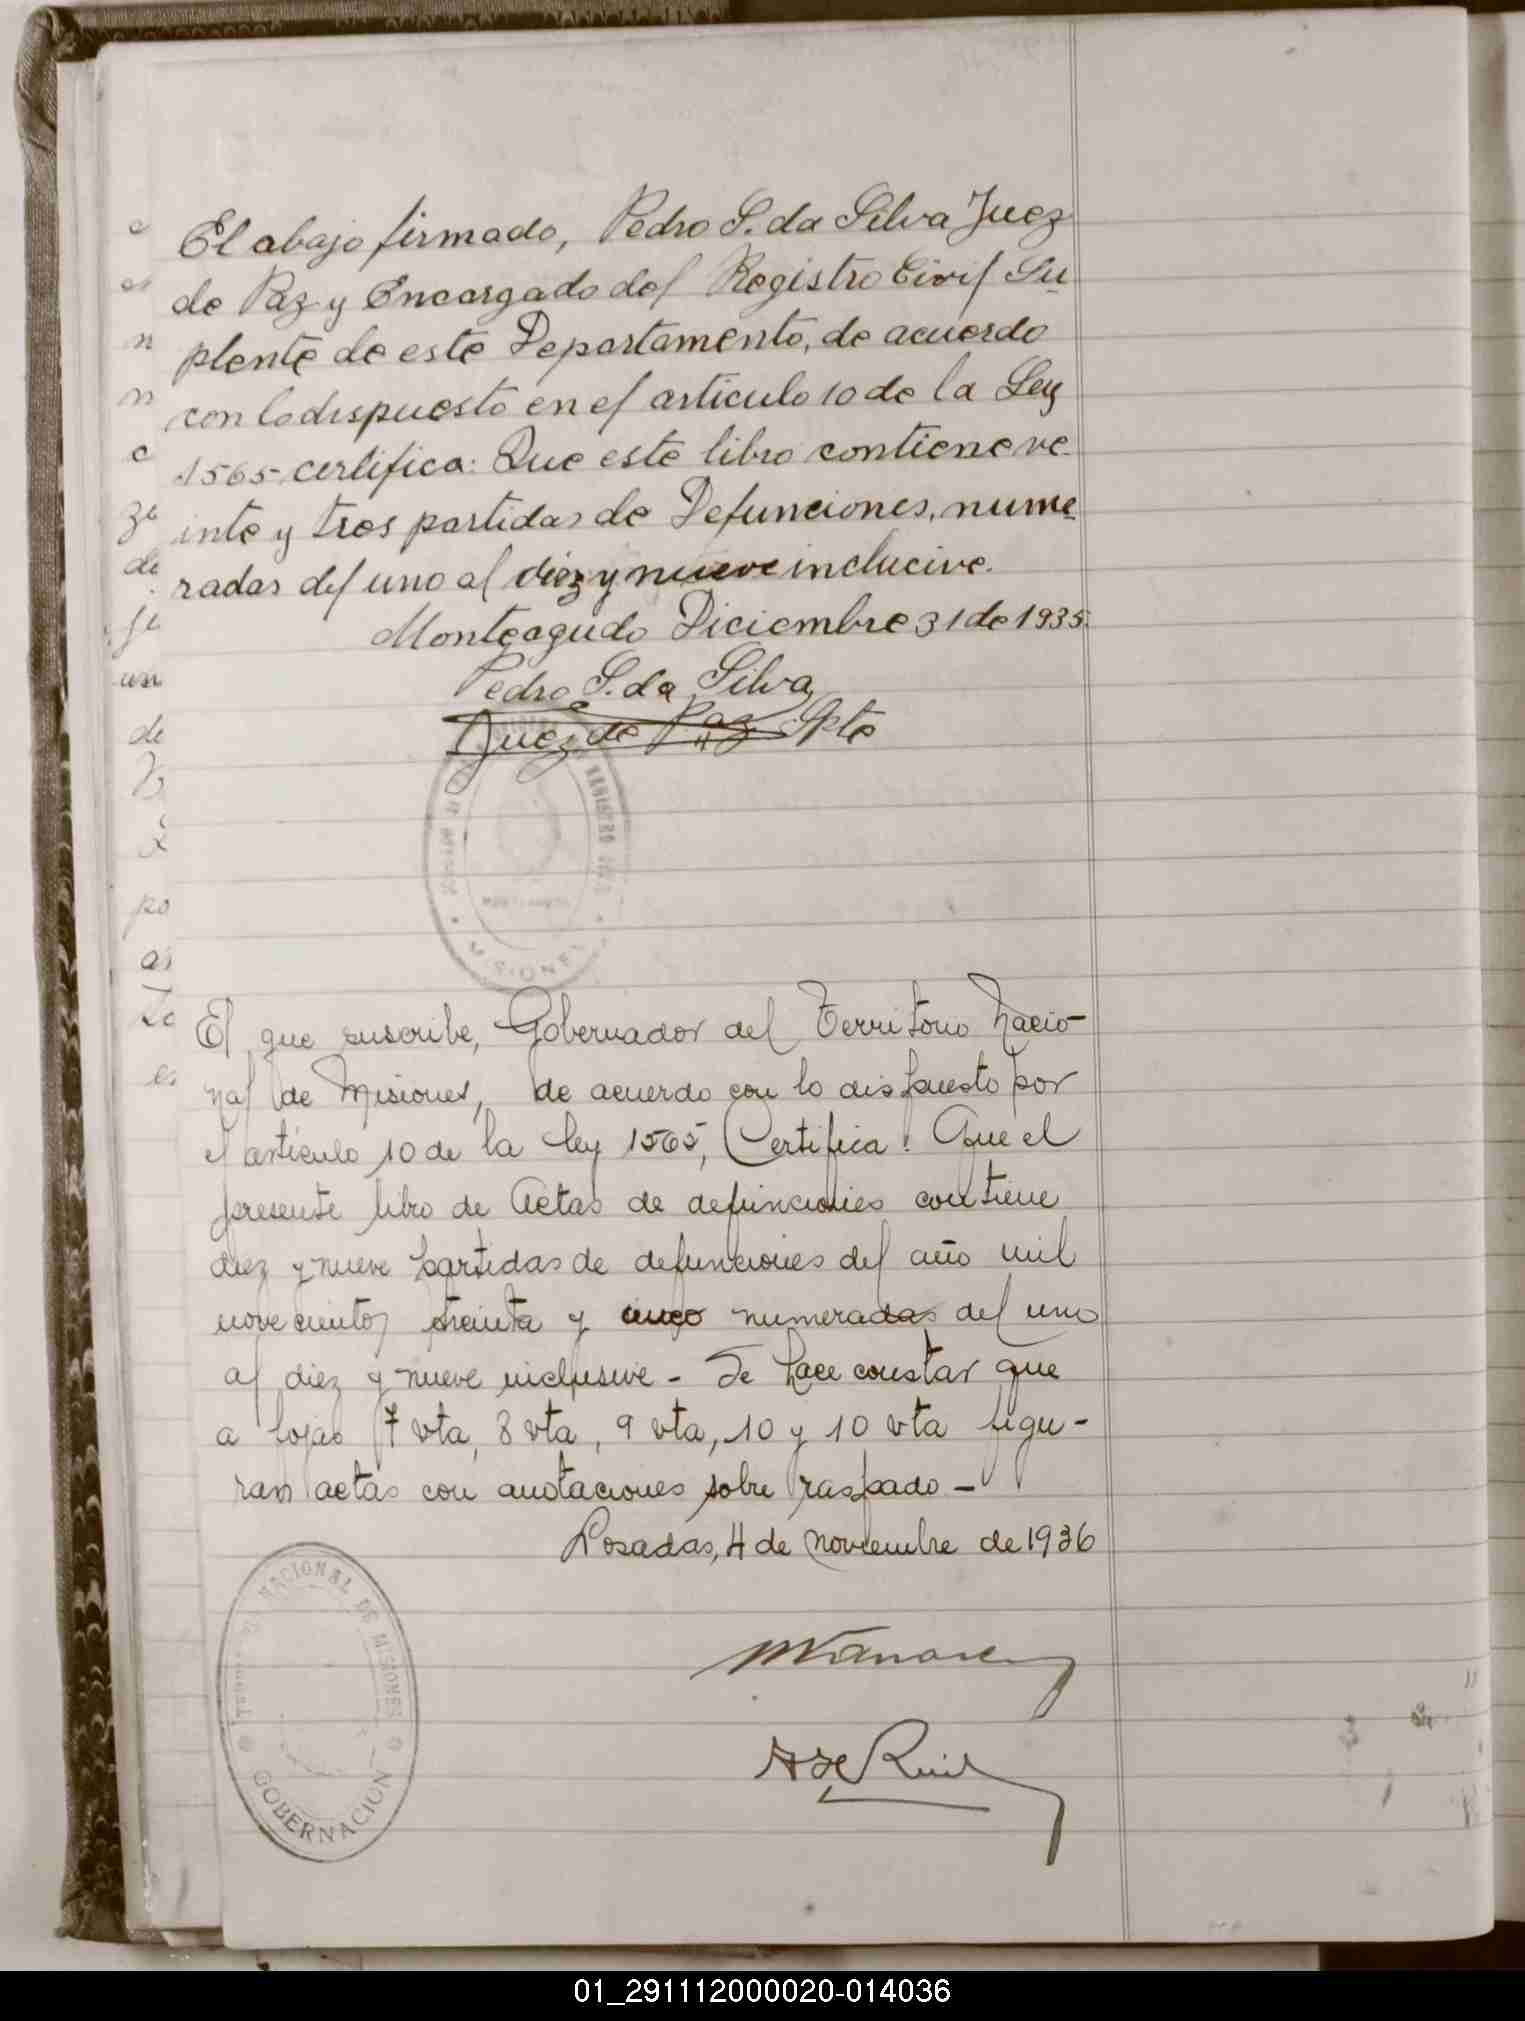 El abajo firmado, Pedro S. da Silva Juez
de Paz y Encargado del Registro Civil Su-
plente de este Departamento, de acuerdo
con lo dispuesto en el articulo 10 de la Ley
1565 certifica: Que este libro contiene ve-
inte y tres partidas de Defunciones, nume-
radas del uno al diez y nueve inclucive.
Monteagudo Diciembre 31 de 1935.
Pedro S. da Silva
Juez de Paz Splte
REGISTRO
MISIONES
El que suscribe, Gobernador del Territorio Nacio-
nal de Misiones, de acuerdo con lo dispuesto por
el artículo 10 de la ley 1565, Certifica: Que el
presente libro de Actas de defunciones contiene
diez y nueve partidas de defunciones del año mil
novecientos treinta y cinco numeradas del uno
al diez y nueve inclusive - Se hace constar que
a fojas 7 vta, 8 vta, 9 vta, 10 y 10 vta figu-
ran actas con anotaciones sobre raspado -
Posadas, 4 de noviembre de 1936
NACIONAL DE MISIONES
GOBERNACION
01_291112000020-014036